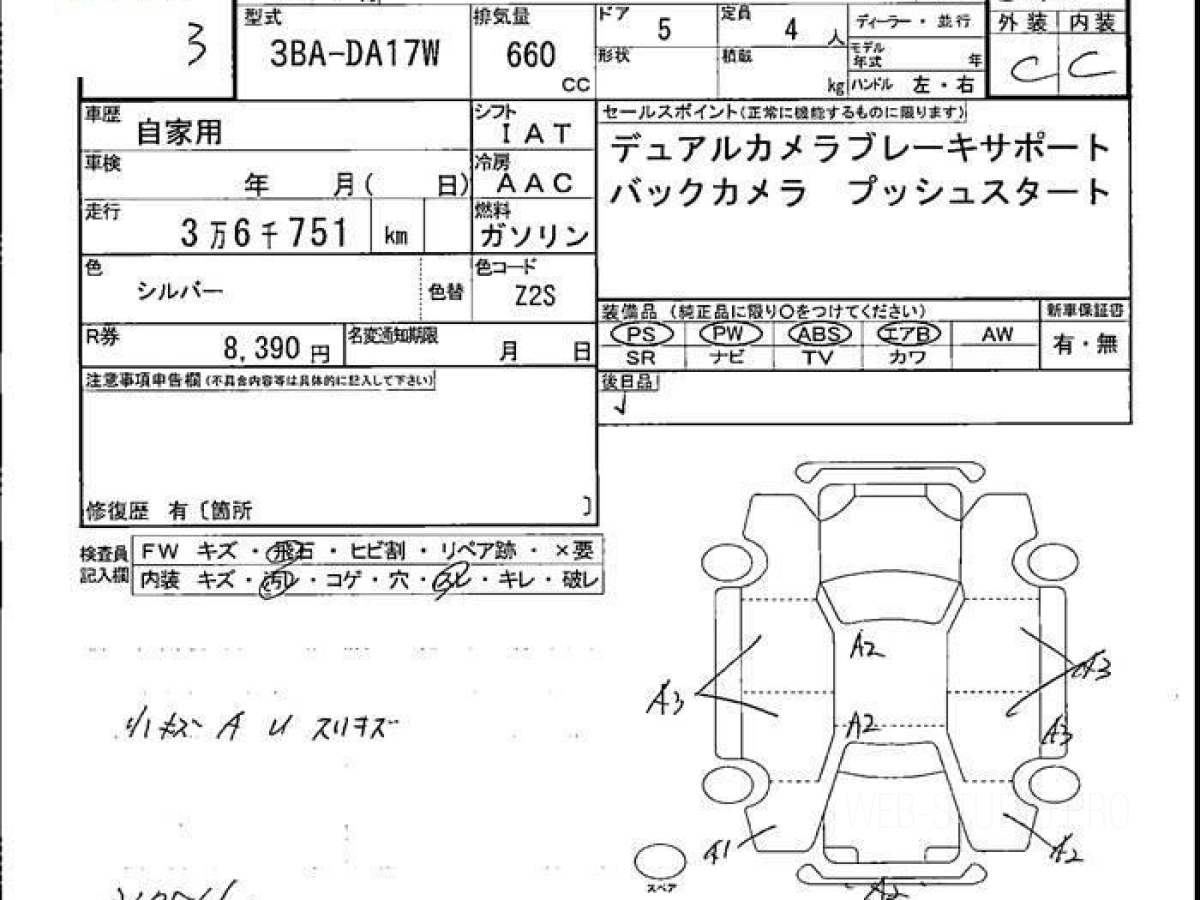 3
型式
3BA-DA17W
排気量
660
CC
ドア
5
形状
定員
4
人
積載
kg
ディーラー・並行
モデル
年式
年
ハンドル 左・右
外装 内装
C C
車歴
自家用
シフト
IAT
車検
年 月( 日)
冷房
AAC
走行
3万6千751
km
燃料
ガソリン
色
シルバー
色替
色コード
Z2S
R券
8,390 円
名変通知期限
月 日
セールスポイント(正常に機能するものに限ります)
デュアルカメラブレーキサポート
バックカメラ プッシュスタート
装備品 (純正品に限り○をつけてください)
新車保証書
PS PW ABS エアB AW
SR ナビ TV カワ
有・無
後日品
注意事項申告欄(不具合内容等は具体的に記入して下さい)
修復歴 有〔箇所 〕
検査員
記入欄
FW キズ・飛石・ヒビ割・リペア跡・×要
内装 キズ・汚レ・コゲ・穴・スレ・キレ・破レ
A2
A3
A3
A2
A3
A1
A2
A2
スペア
WEB-STUDY.PRO